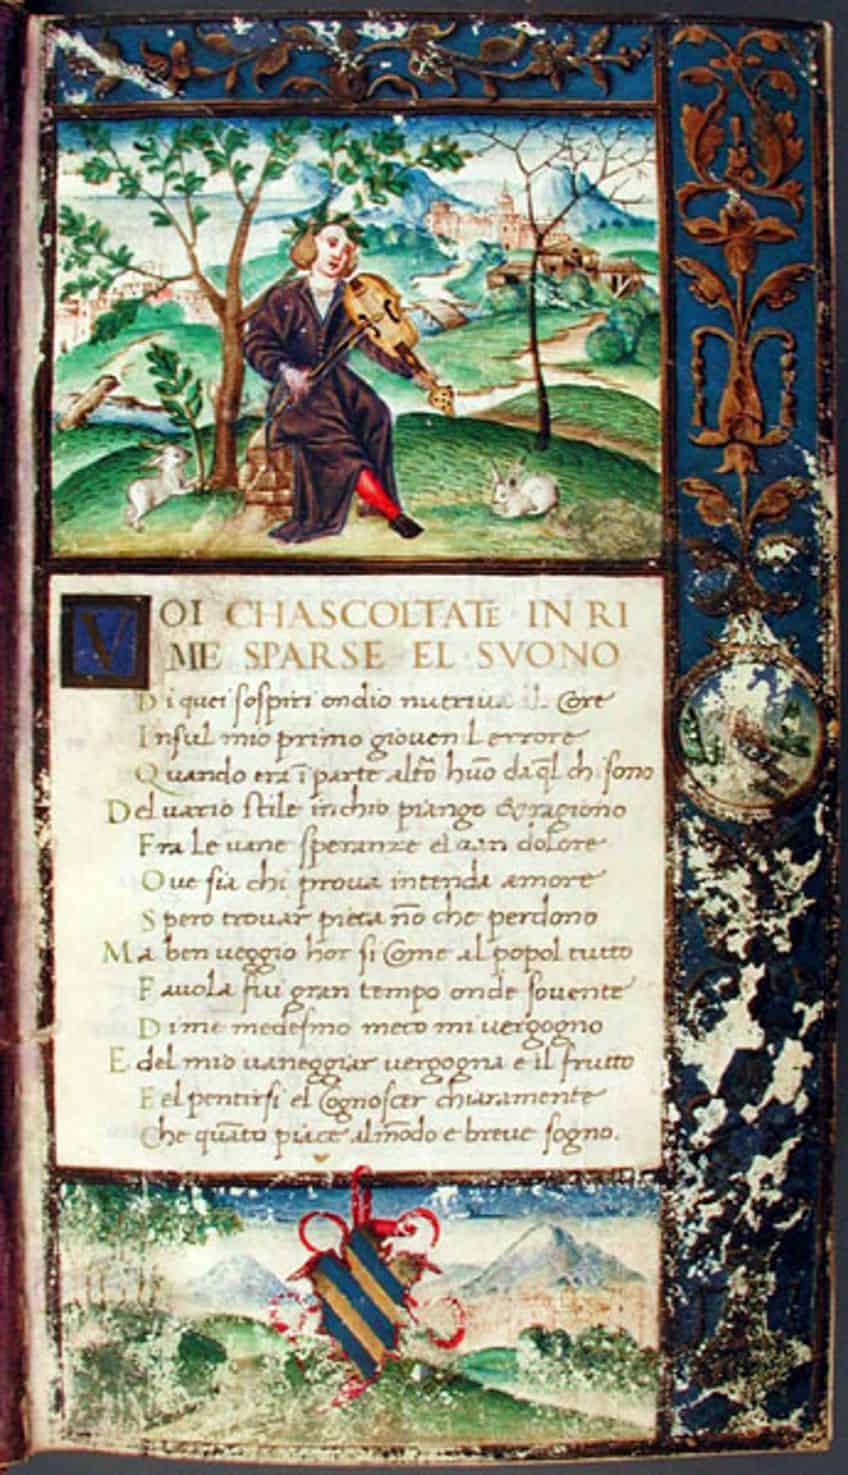 VOI CHASCOLTATE IN RI
ME SPARSE EL SVONO
Di quei sospiri ondio nutriua il Core
In sul mio primo giouenil errore
Quando era ī parte altr̄o huō da q̄l ch i sono
Del uario stile in chio piango & ragiono
Fra Le uane speranze el uan dolore
Oue sia chi proua intenda amore
Spero trouar pieta nō che perdono
Ma ben ueggio hor si Come al popol tutto
Fauola fui gran tempo onde souente
Di me medesmo meco mi uergogno
E del mio uaneggiar uergogna e il frutto
E el pentirsi el Cognoscer chiaramente
Che quāto piace al mōdo e breue sogno.